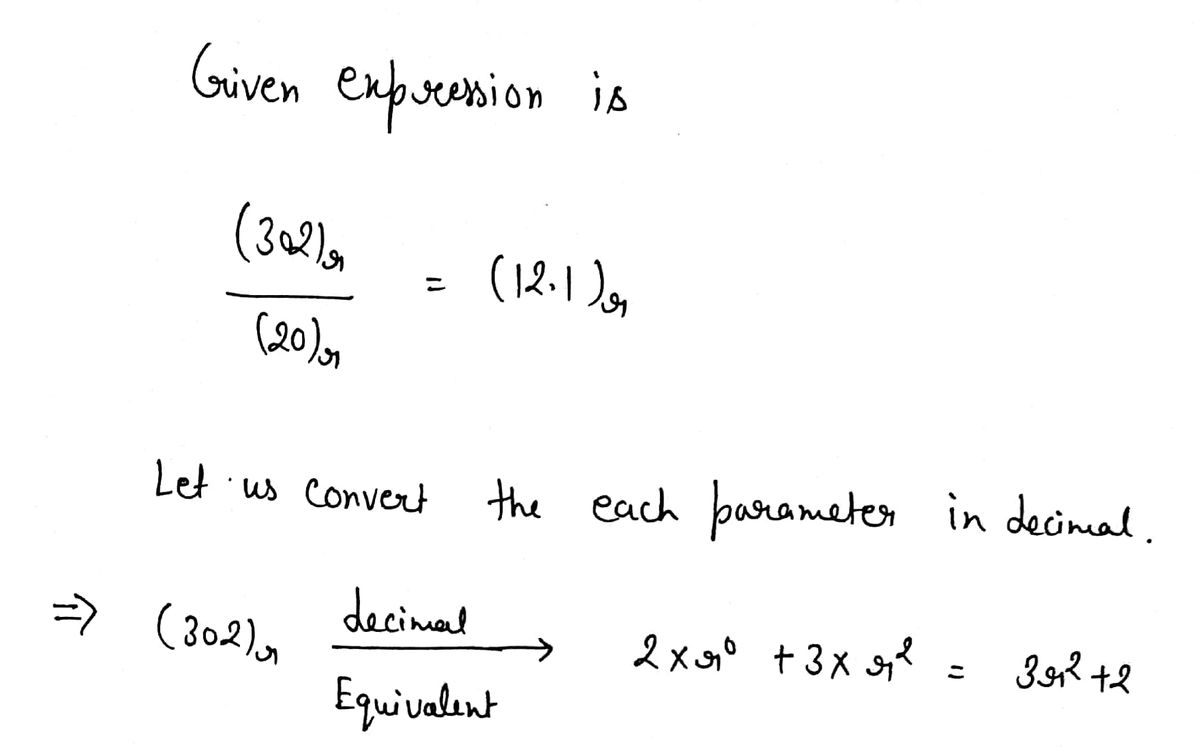 Given expression is
(302)r / (20)r = (12.1)r
Let us convert the each parameter in decimal.
⇒ (302)r decimal Equivalent → 2 × r⁰ + 3 × r² = 3r² + 2